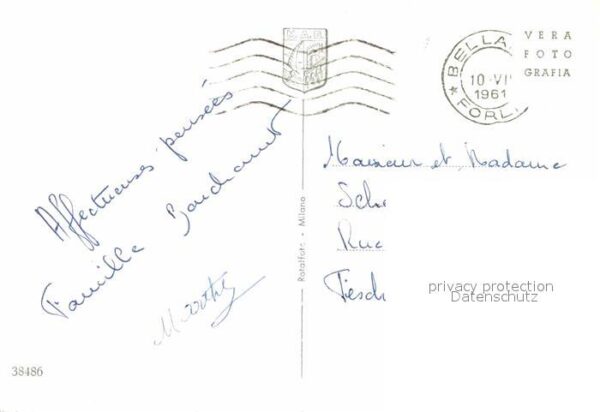 Affectueuses pensées
Famille
Marthe
38486
M.A.B.
Rotalfoto - Milano
BELLA
10 VI
1961
FORLI
VERA
FOTO
GRAFIA
Monsieur et Madame
Sch
Rue
Fesch
privacy protection
Datenschutz